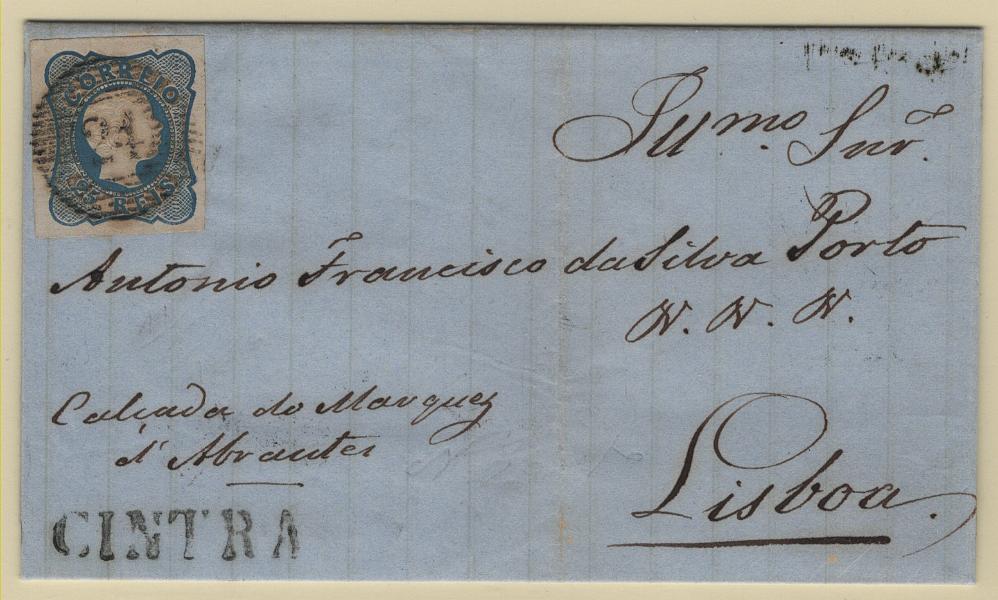 CORREIO
25 REIS
Illmo. Snr.
Antonio Francisco da Silva Porto
N. N. N.
Calçada do Marquez
d'Abrantes
Lisboa.
CINTRA